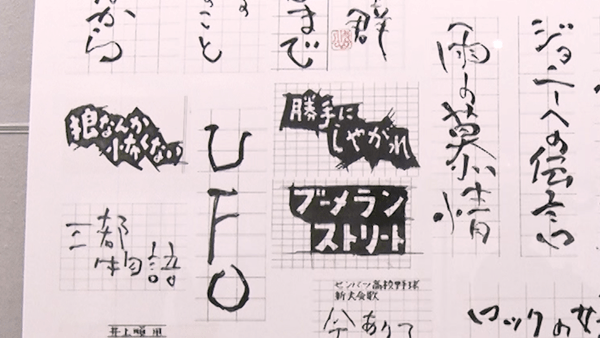 ジョニーへの伝言
雨の慕情
群
まで
のこと
から
勝手に
しやがれ
ブーメラン
ストリート
UFO
狼なんか
怖くない
三都
物語
センバツ高校野球
新大会歌
今ありて
ロックの